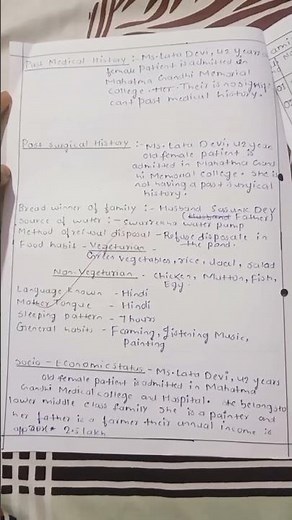 Past Medical History :- Ms. Lata Devi, 42 years
female patient is admitted in
Mahatma Gandhi Memorial
College. Her. Their is no signifi
cant past medical history.
Past Surgical History :- Ms. Lata Devi, 42 year
old female patient is
admitted in Mahatma Gand
hi Memorial College. She is
not having a past surgical
history.
Bread winner of family :- Husband DEV
Source of water :- water pump (Husband Father)
Method of refusal disposal - Refuse disposale in
the pond.
Food habit - Vegetarian -
Green vegetables, rice, Daal, salad
Non-Vegetarian - Chicken, Mutton, Fish,
Egg
Language known - Hindi
Mother Tongue - Hindi
Sleeping pattern - 7 hours
General habits - Farming, listening Music,
Painting
Socio - Economic status - Ms. Lata Devi, 42 years
old female patient is admitted in Mahatma
Gandhi Medical college and Hospital. she belongs to
lower middle class family she is a painter and
her father is a farmer their annual income is
2.5 lakh